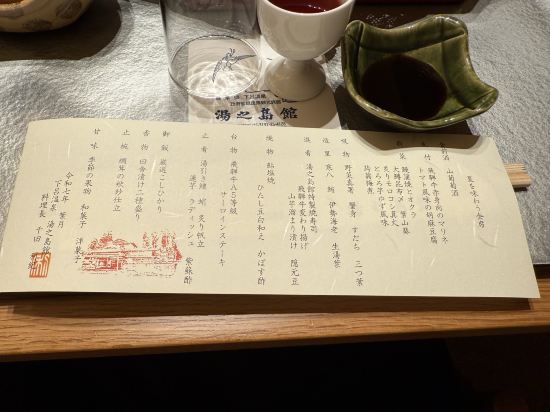 湯之島館
夏を味わう会席
食前酒 山葡萄酒
先付 飛騨牛赤身肉のマリネ
トマト風味の胡麻豆腐
前菜 鰻蒲焼とオクラ
とろろ芋のゆず風味
吸物 野菜真薯 蟹身 すだち 三つ葉
造里 寒八 蛸 伊勢海老 生湯葉
温肴 湯之島館特製焼寿司
飛騨牛変わり揚げ
山芋溜まり漬け 隠元豆
焼物 鮎塩焼
ひたし豆白和え かぼす酢
台物 飛騨牛A5等級
サーロインステーキ
止肴 湯引き鱧 蛸 炙り帆立
蓮芋 ラディッシュ 紫蘇酢
御飯 厳選こしひかり
香物 田舎漬け二種盛り
止椀 鯛茸の秋紗仕立
甘味 季節の果物 和菓子 洋菓子
令和七年 葉月
下呂温泉 湯之島館
料理長 千田